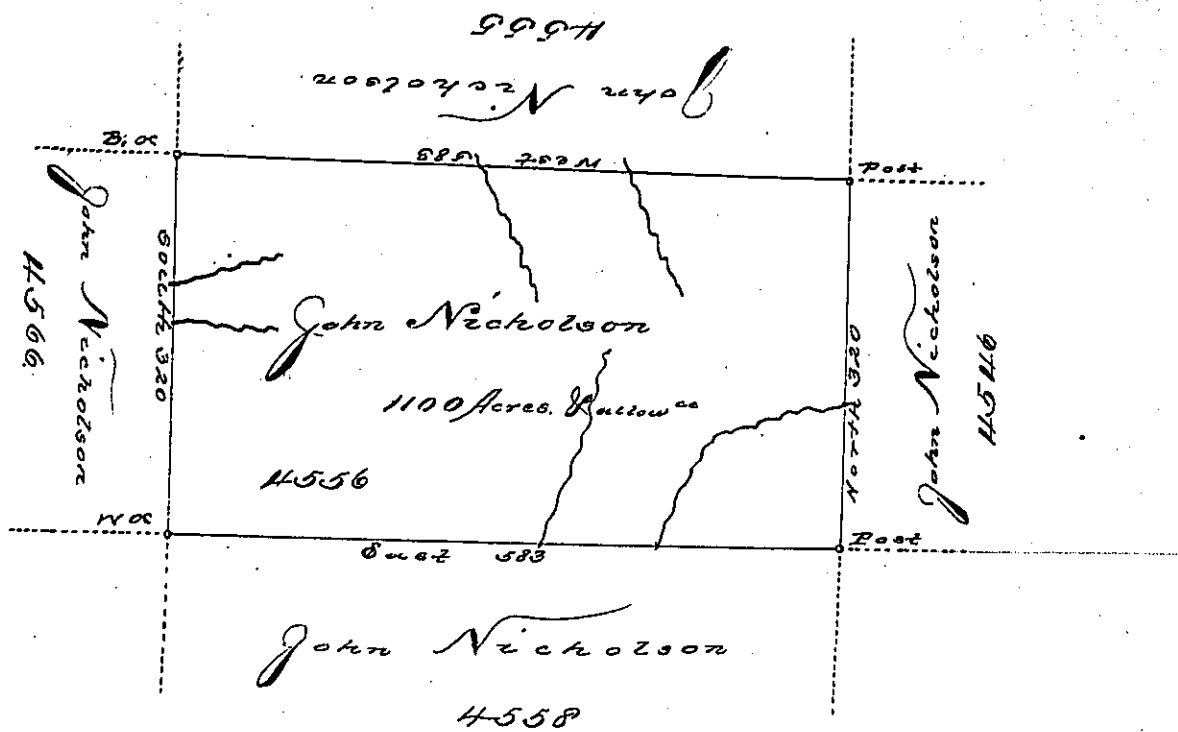 4555
John Nicholson
Bi. Oc
West 585
Post
John Nicholson
4566
South 320
John Nicholson
1100 Acres. & allow ce
4556
North 320
John Nicholson
4546
W Oc
East 583
Post
John Nicholson
4558